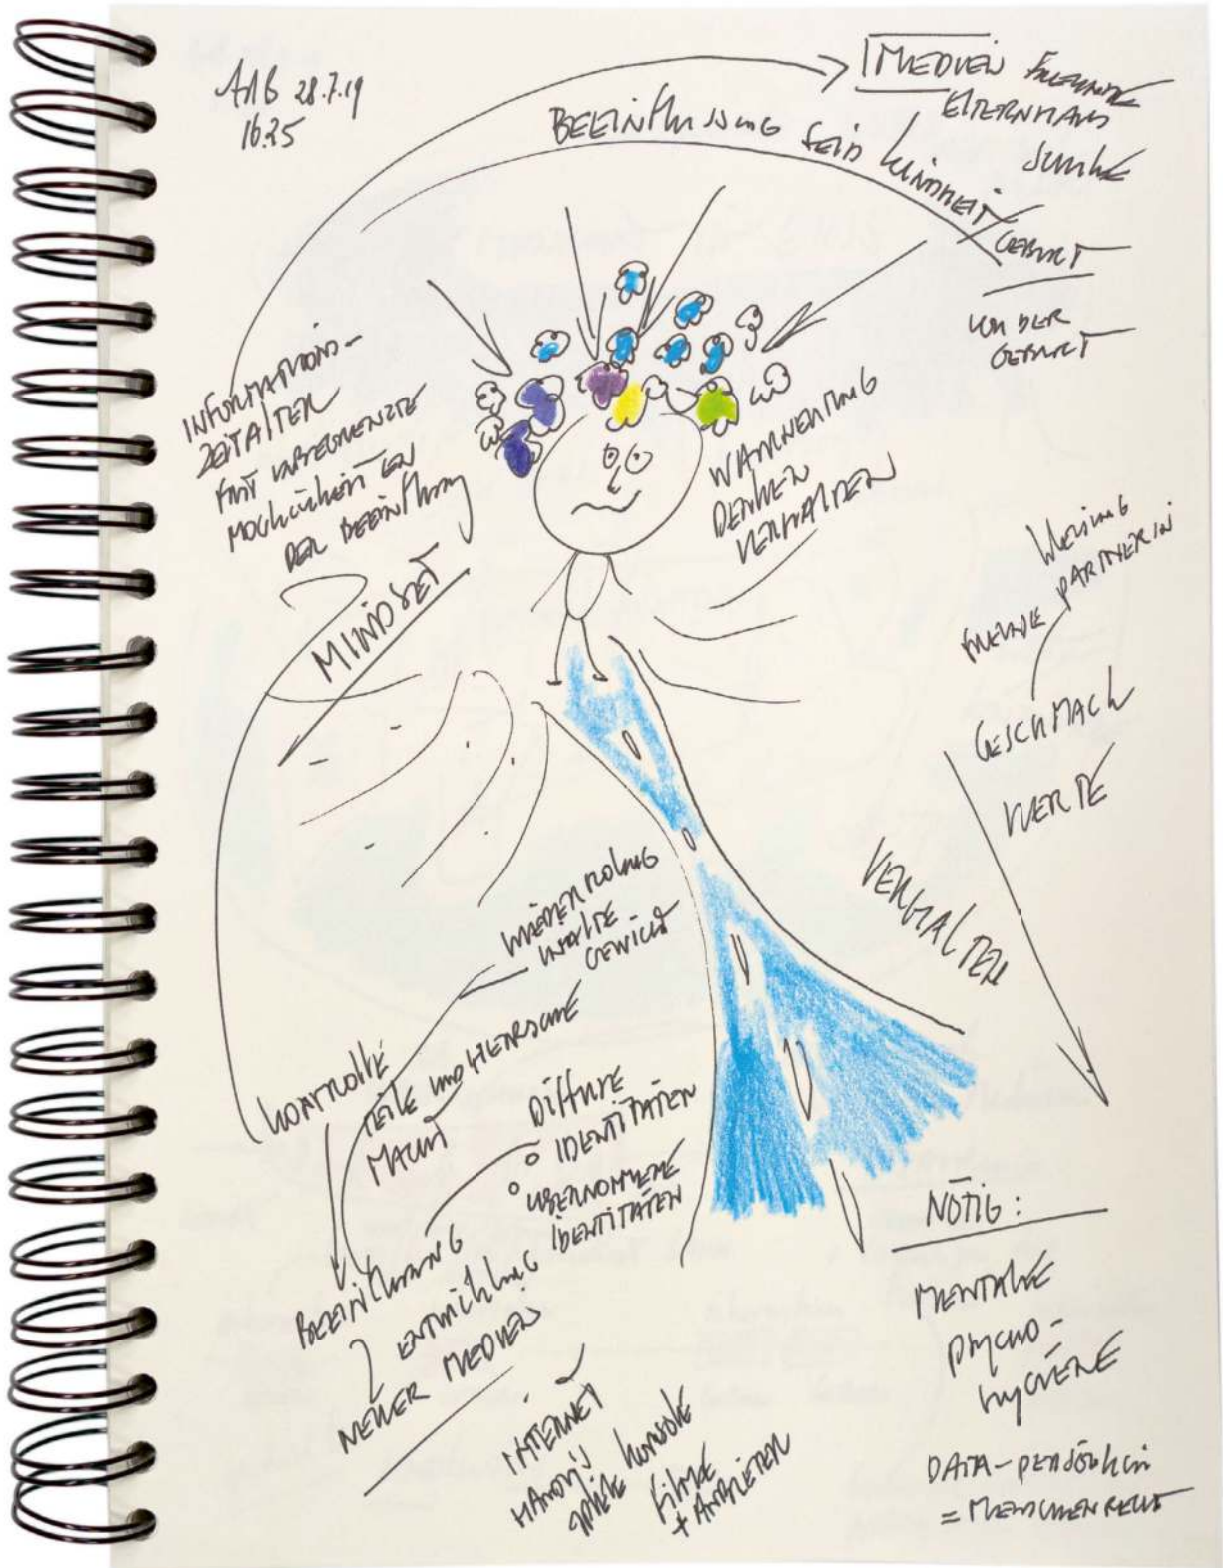 28.7.19
16.25
MEDIEN FREUNDE
ELTERNHAUS
SCHULE
BEEINFLUSSUNG SEID KINDHEIT
GEBURT
VOR DER
GEBURT
INFORMATIONS-
ZEITALTER
FAST UNBEGRENZTE
MÖGLICHKEITEN
DER BEEINFLUSSUNG
MINDSET
WAHRNEHMUNG
DENKEN
VERHALTEN
KLEIDUNG
PARTNERIN
FREUNDE
GESCHMACK
WERTE
VERHALTEN
WIEDERHOLUNG
INHALTE
GEWICHT
KONTROLLE
TEILE UND HERRSCHE
MACHT
DIFFUSE
o IDENTITÄTEN
o ÜBERNOMMENE
IDENTITÄTEN
BEEINFLUSSUNG
ENTWICKLUNG
NEUER MEDIEN
INTERNET
HANDYS
SPIELE KONSOLE
FILME
+ ANBIETER
NÖTIG:
MENTALE
PSYCHO-
HYGIENE
DATA-PERSÖNLICH
= MENSCHENRECHT